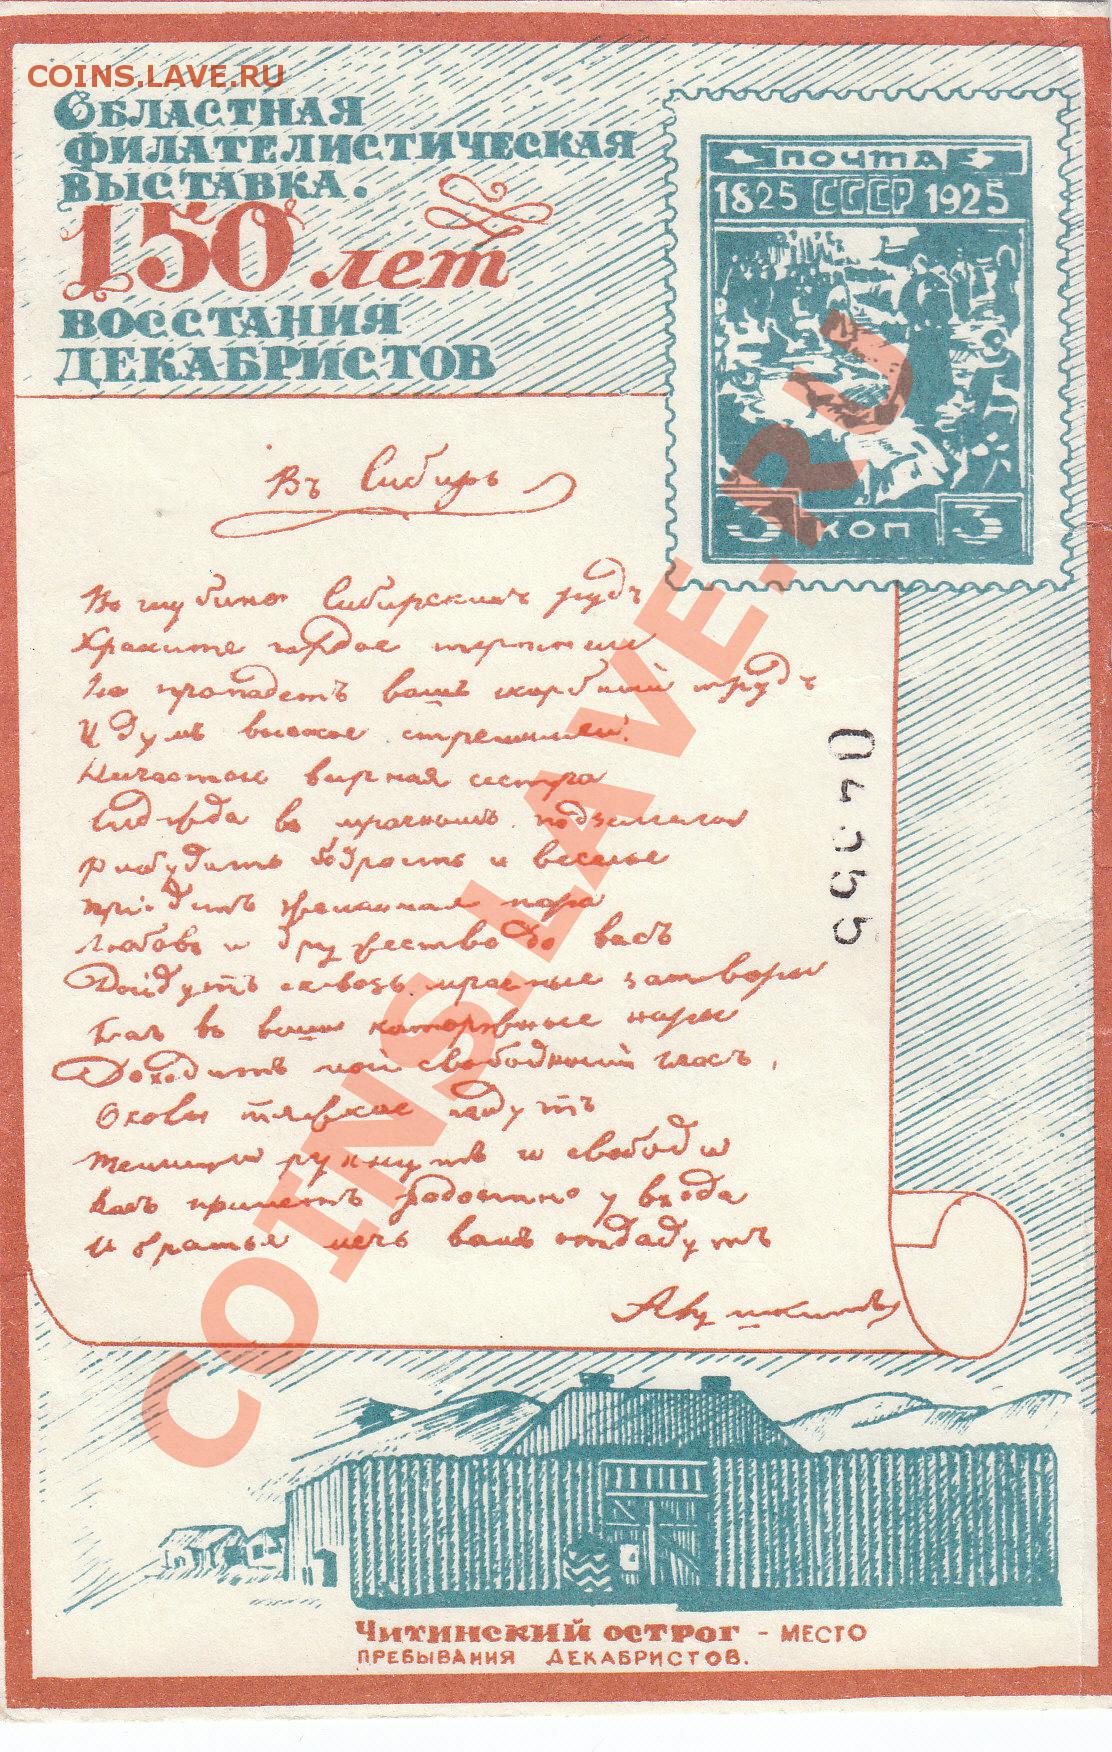 COINS.LAVE.RU
ОБЛАСТНАЯ
ФИЛАТЕЛИСТИЧЕСКАЯ
ВЫСТАВКА.
150 лет
ВОССТАНИЯ
ДЕКАБРИСТОВ
ПОЧТА
1825 СССР 1925
3 КОП 3
Въ Сибирь
Во глубине Сибирскихъ рудъ
Храните гордое терпенье
Не пропадетъ вашъ скорбный трудъ
И думъ высокое стремленье.
Несчастью верная сестра
Надежда въ мрачномъ подземелье
Разбудитъ бодрость и веселье
Придетъ желанная пора
Любовь и дружество до васъ
Дойдутъ сквозь мрачные затворы
Какъ въ ваши каторжные норы
Доходитъ мой свободный гласъ.
Оковы тяжкие падутъ
Темницы рухнутъ и свобода
Васъ приметъ радостно у входа
И братья мечь вамъ отдадутъ
А Пушкинъ
COINS.LAVE.RU
ЧИТИНСКИЙ ОСТРОГ - МЕСТО
ПРЕБЫВАНИЯ ДЕКАБРИСТОВ.